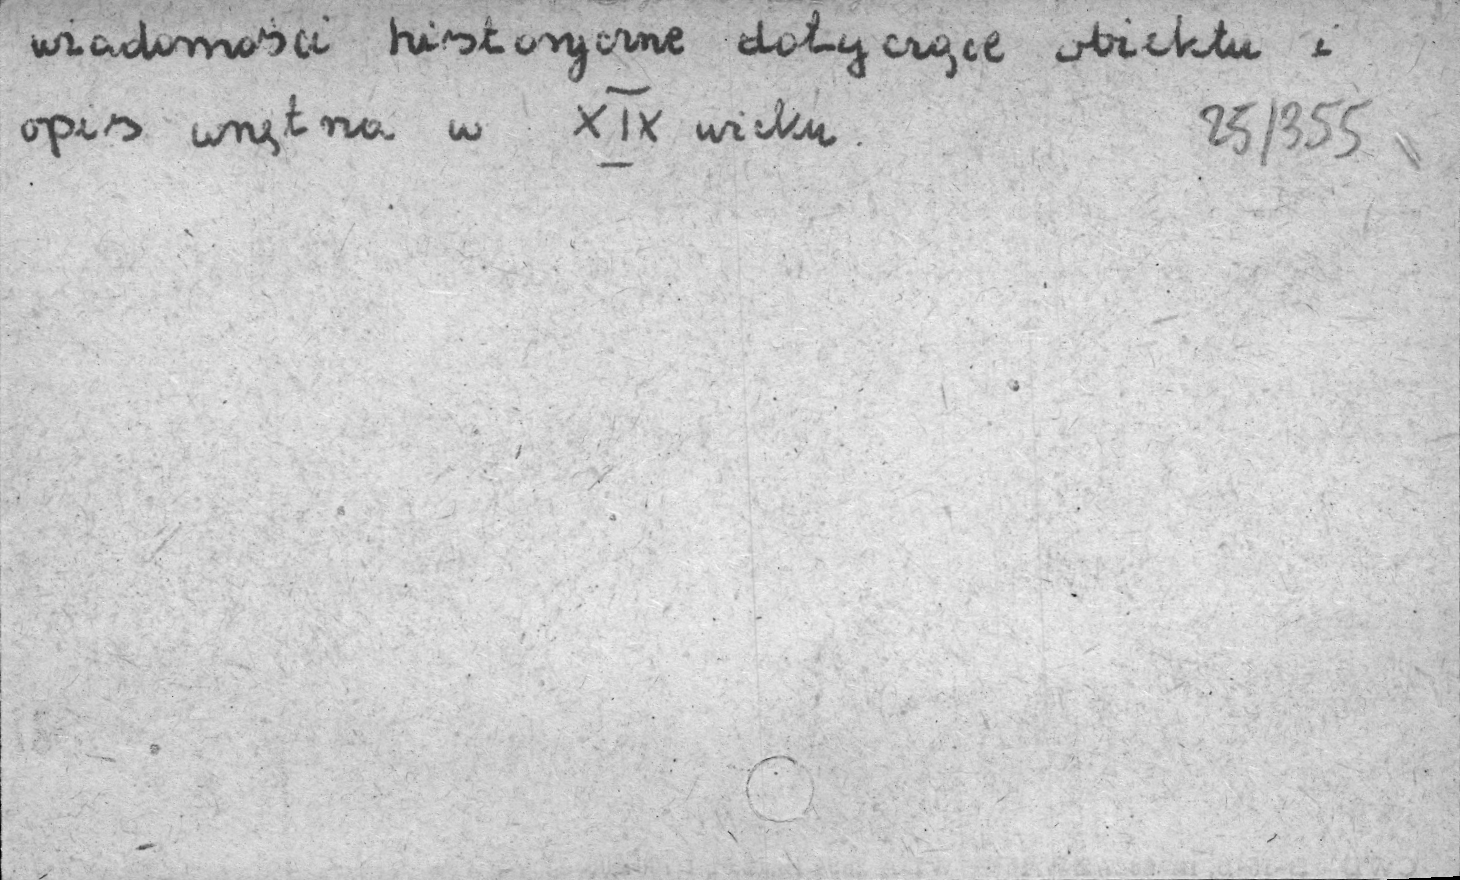 wiadomości historyczne dotyczące obiektu i
opis wnętrza w XIX wieku. 25/355